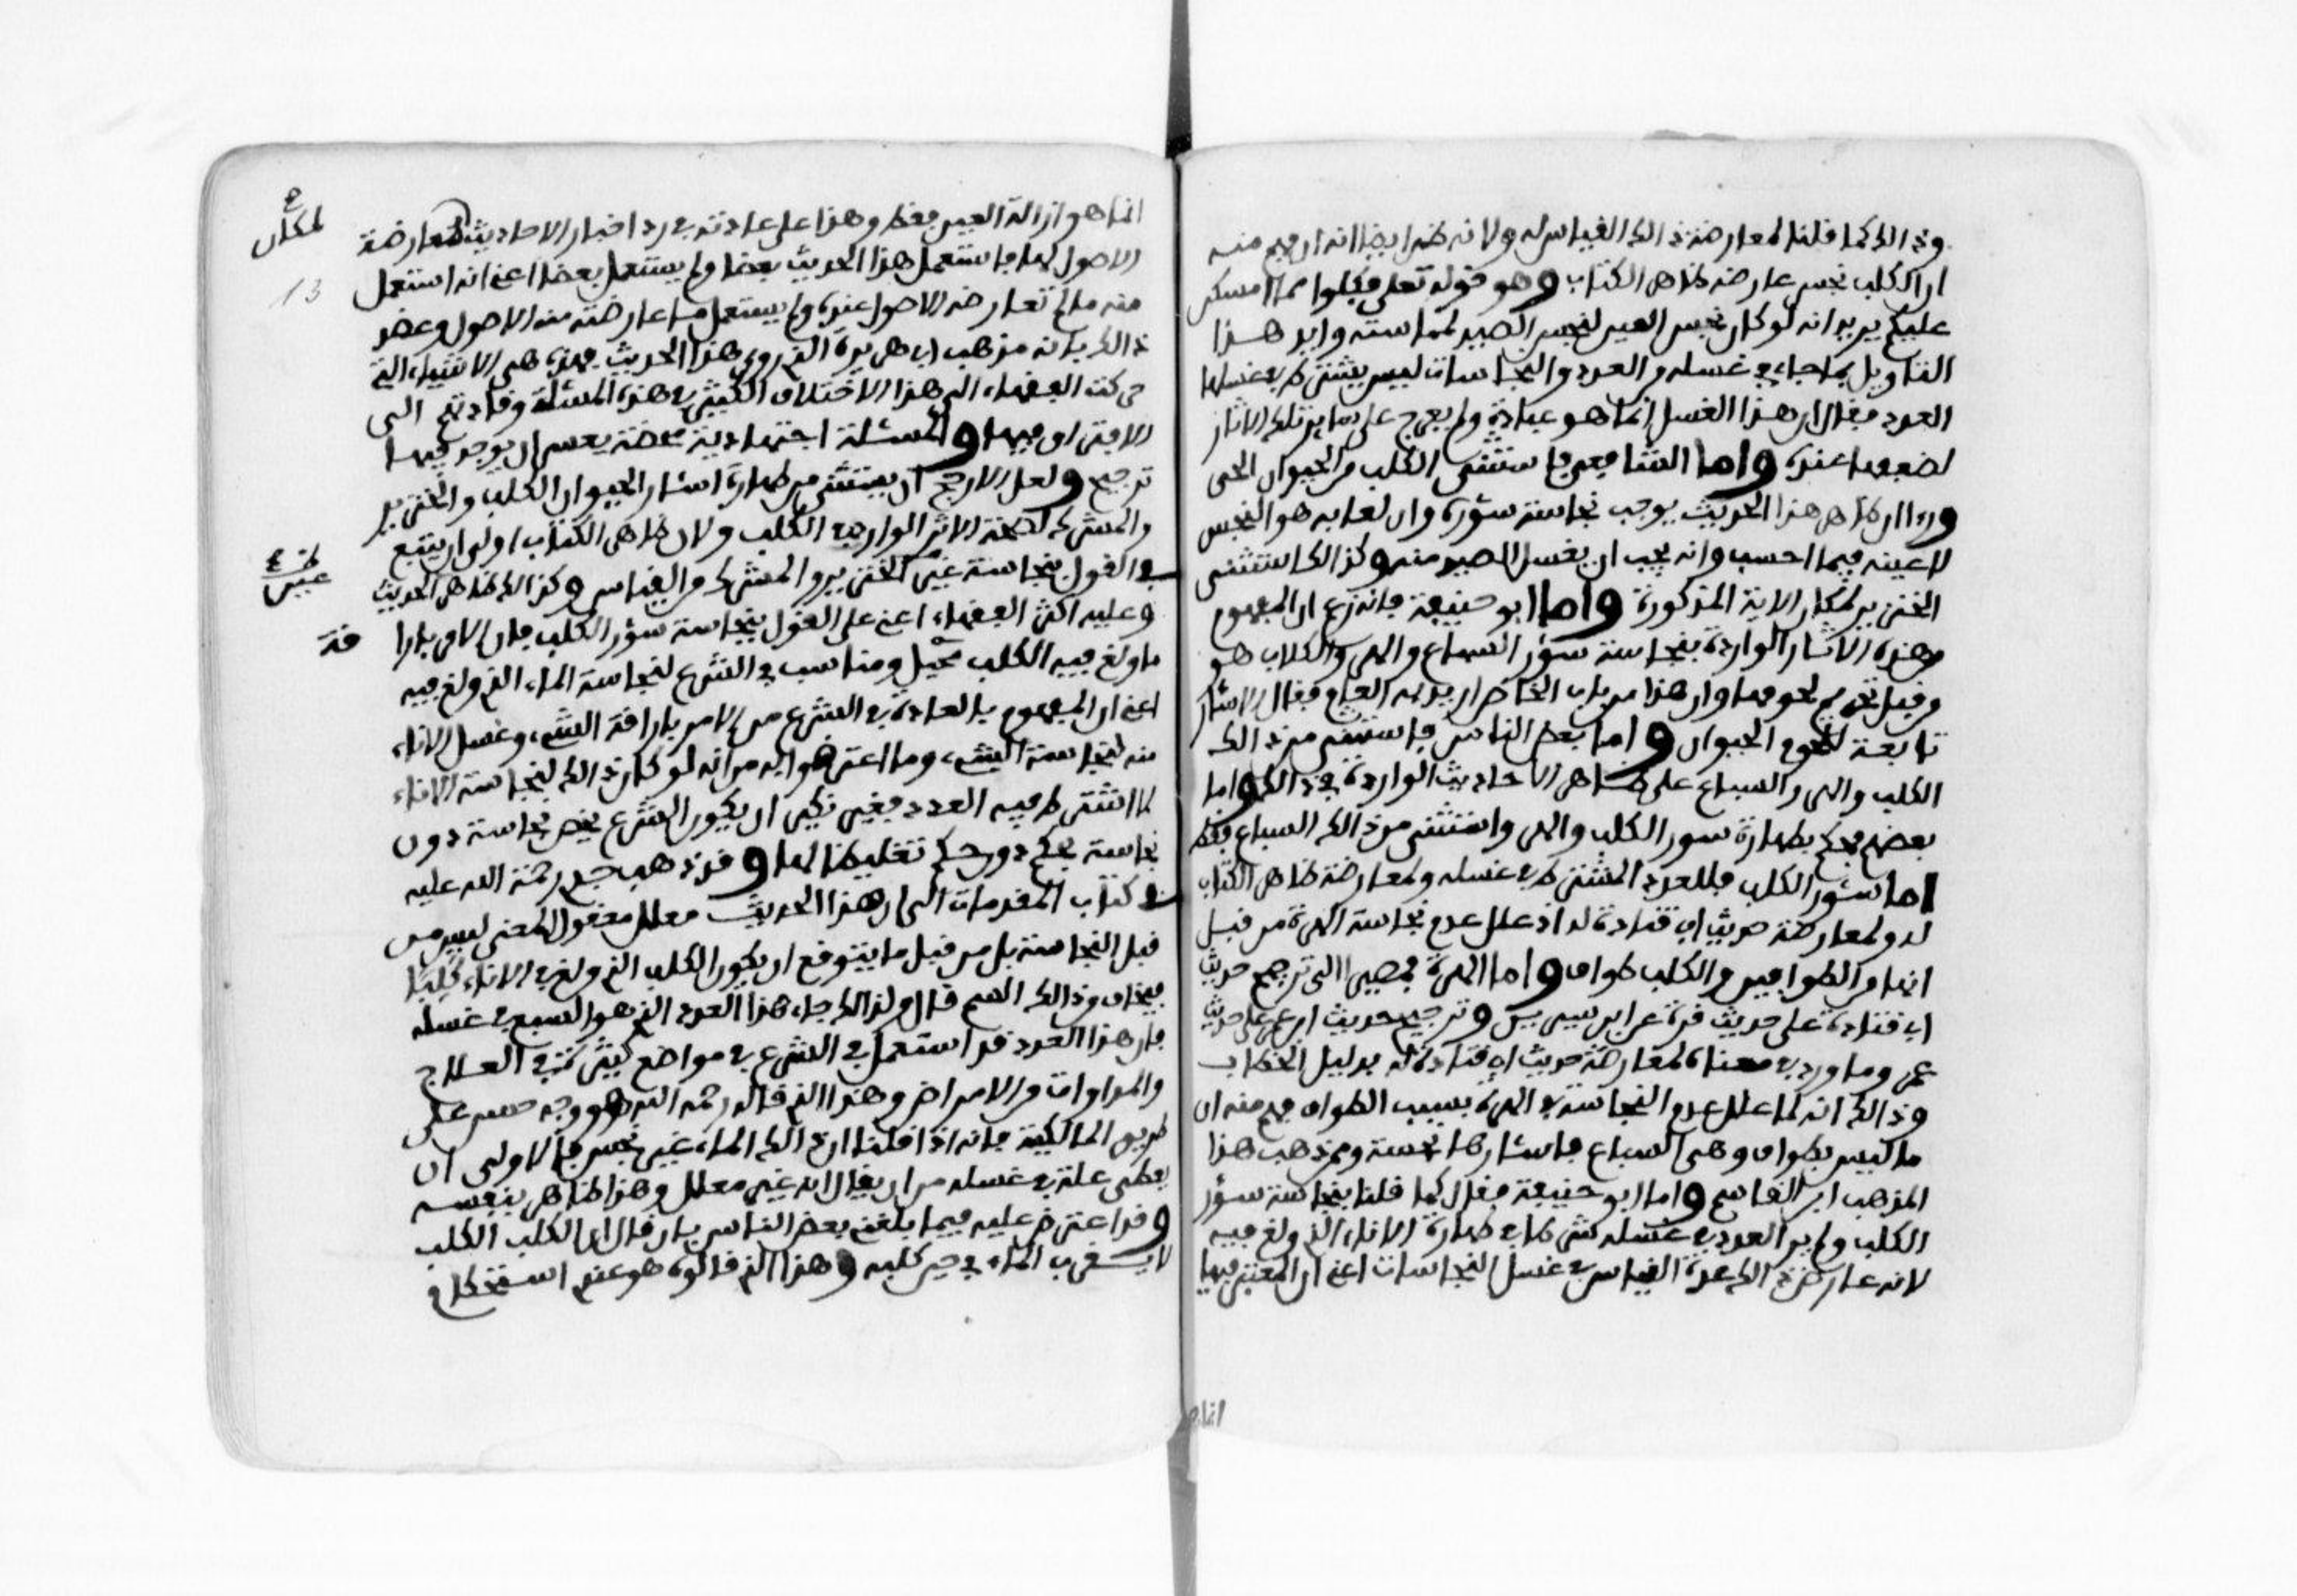 وذالك كما قلنا لمعارضة ذالك القياس له ولانه ظن ايضا انه ان فهم منه
ان الكلب نجس عارضه ظاهر الكتاب وهو قوله تعلى فكلوا مما امسكن
عليكم يريد انه لو كان نجس العين لنجس الصيد لمماسته وايد هذا
التاويل بما جاء في غسله من العدد والنجاسات ليس يشترط في غسلها
العدد فقال ان هذا الغسل انما هو عبادة ولم يعرج على ساير تلك الاثار
لضعفها عنده واما الشافعي فاستثنى الكلب من الحيوان الحي
وراى ان ظاهر هذا الحديث يوجب نجاسة سؤره وان لعابه هو النجس
لا عينه فيما احسب وانه يجب ان يغسل الصيد منه وكذالك استثنى
الخنزير لمكان الاية المذكورة واما ابو حنيفة فانه زعم ان المفهوم
من هذه الاثار الواردة بنجاسة سؤر السباع والهر والكلاب هو
من قبل تحريم لحومها وان هذا من باب الخاص اريد به العام فقال الاسئار
تابعة للحوم الحيوان واما بعض الناس فاستثنى من ذالك
الكلب والهر والسباع على ظاهر الاحاديث الواردة في ذالك واما
بعضهم فحكم بطهارة سور الكلب والهر واستثنى من ذالك السباع فقط
اما سؤر الكلب فللعدد المشترط في غسله ولمعارضة ظاهر الكتاب
له ولمعارضة حديث ابي قتادة له اذ علل عدم نجاسة الهرة من قبل
انها من الطوافين والكلب طواف واما الهرة فمصيرا الى ترجيح حديث
ابي قتادة على حديث قرة عن ابن سيرين وترجيح حديث ابن عمر على حديث
عمر وما ورد في معناه لمعارضة حديث ابي قتادة له بدليل الخطاب
وذالك انه لما علل عدم النجاسة في الهرة بسبب الطواف فهم منه ان
ما ليس بطواف وهي السباع فاسئارها نجسة وممن ذهب هذا
المذهب ابن القاسم واما ابو حنيفة فقال كما قلنا بنجاسة سؤر
الكلب ولم ير العدد في غسله شرطا في طهارة الاناء الذي ولغ فيه
لانه عارض ذالك عنده القياس في غسل النجاسات اعني ان المعتبر فيها
انما
انما هو ازالة العين فقط وهذا على عادته في رد اخبار الاحاد يث لمعارضة
لمكان
الاصول لها فاستعمل هذا الحديث بعضا ولم يستعمل بعضا اعني انه استعمل
13
منه ما لم تعارضه الاصول عنده ولم يستعمل ما عارضته منه الاصول وعضد
ذالك بانه مذهب ابي هريرة الذي روى هذا الحديث فهذه هي الاشياء التي
حركت الفقهاء الى هذا الاختلاف الكثير في هذه المسئلة وقادتهم الى
الافتراق فيها والمسئلة اجتهادية محضة يعسر ان يوجد فيها
ترجيح ولعل الارجح ان يستثنى من طهارة اسئار الحيوان الكلب والخنزير
والمشرك لصحة الاثر الوارد في الكلب ولان ظاهر الكتاب اولى ان يتبع
في القول بنجاسة عين الخنزير والمشرك من القياس وكذالك ظاهر الحديث
عين
وعليه اكثر الفقهاء اعني على القول بنجاسة سؤر الكلب فان الامر بارا
قة
ما ولغ فيه الكلب مخيل ومناسب في الشرع لنجاسة الماء الذي ولغ فيه
اعني ان المفهوم بالعادة في الشرع من الامر باراقة الشيء وغسل الاناء
منه لنجاسة الشيء وما اعترضوا به من انه لو كان ذالك لنجاسة الاناء
لما اشترط فيه العدد فغير نكير ان يكون الشرع يخص نجاسة دون
نجاسة بحكم دون حكم تغليظا لها وقد ذهب جدي رحمة الله عليه
في كتاب المقدمات الى ان هذا الحديث معلل معقول المعنى ليس من
قبل النجاسة بل من قبل ما يتوقع ان يكون الكلب الذي ولغ في الاناء كلبا
فيخاف من ذالك السم قال ولذالك جاء هذا العدد الذي هو السبع في غسله
فان هذا العدد قد استعمل في الشرع في مواضع كثيرة في العلاج
والمداوات من الامراض وهذا الذي قاله رحمه الله هو وجه حسن على
طريق المالكية فانه اذا قلنا ان ذالك الماء غير نجس فالاولى ان
يعطى علة في غسله من ان يقال انه غير معلل وهذا ظاهر بنفسه
وقد اعترض عليه فيما بلغني بعض الناس بان قال ان الكلب الكلب
لا يقرب الماء في حين كلبه وهذا الذي قالوه هو عند استحكام